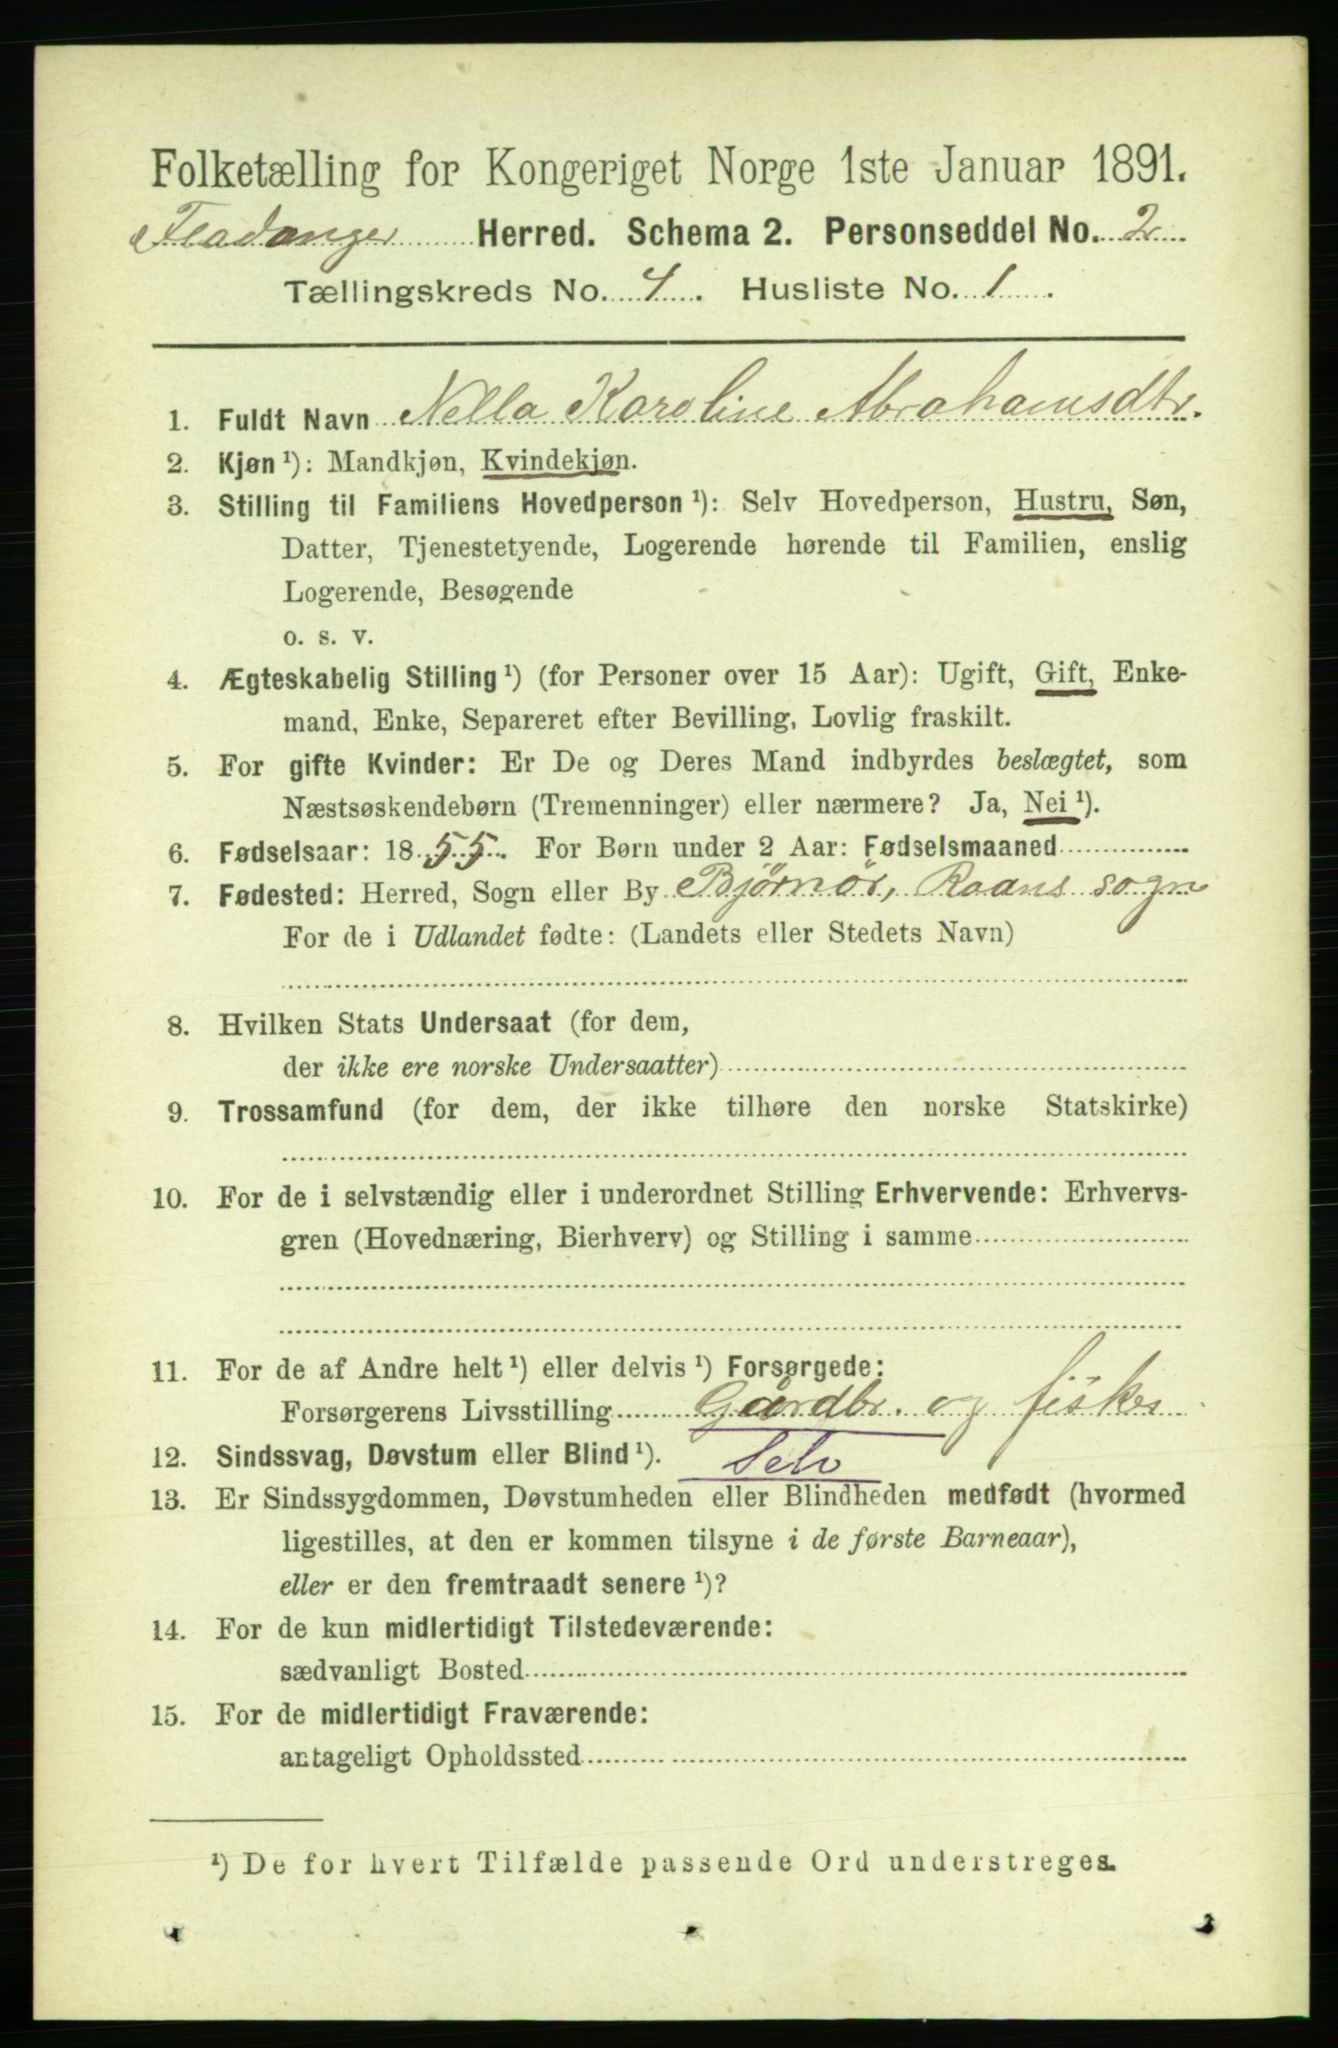 Folketælling for Kongeriget Norge 1ste Januar 1891.
Fladanger Herred. Schema 2. Personseddel No. 2
Tællingskreds No. 4. Husliste No. 1.
1. Fuldt Navn Nella Karoline Abrahamsdtr.
2. Kjøn ¹): Mandkjøn, Kvindekjøn.
3. Stilling til Familiens Hovedperson ¹): Selv Hovedperson, Hustru, Søn,
Datter, Tjenestetyende, Logerende hørende til Familien, enslig
Logerende, Besøgende
o. s. v.
4. Ægteskabelig Stilling ¹) (for Personer over 15 Aar): Ugift, Gift, Enke-
mand, Enke, Separeret efter Bevilling, Lovlig fraskilt.
5. For gifte Kvinder: Er De og Deres Mand indbyrdes beslægtet, som
Næstsøskendebørn (Tremenninger) eller nærmere? Ja, Nei ¹).
6. Fødselsaar: 1855. For Børn under 2 Aar: Fødselsmaaned
7. Fødested: Herred, Sogn eller By Bjørnør, Roans sogn
For de i Udlandet fødte: (Landets eller Stedets Navn)
8. Hvilken Stats Undersaat (for dem,
der ikke ere norske Undersaatter)
9. Trossamfund (for dem, der ikke tilhøre den norske Statskirke)
10. For de i selvstændig eller i underordnet Stilling Erhvervende: Erhvervs-
gren (Hovednæring, Bierhverv) og Stilling i samme
11. For de af Andre helt ¹) eller delvis ¹) Forsørgede:
Forsørgerens Livsstilling Gårdbr. og fisker
12. Sindssvag, Døvstum eller Blind ¹). Selv
13. Er Sindssygdommen, Døvstumheden eller Blindheden medfødt (hvormed
ligestilles, at den er kommen tilsyne i de første Barneaar),
eller er den fremtraadt senere ¹)?
14. For de kun midlertidigt Tilstedeværende:
sædvanligt Bosted
15. For de midlertidigt Fraværende:
antageligt Opholdssted
¹) De for hvert Tilfælde passende Ord understreges.